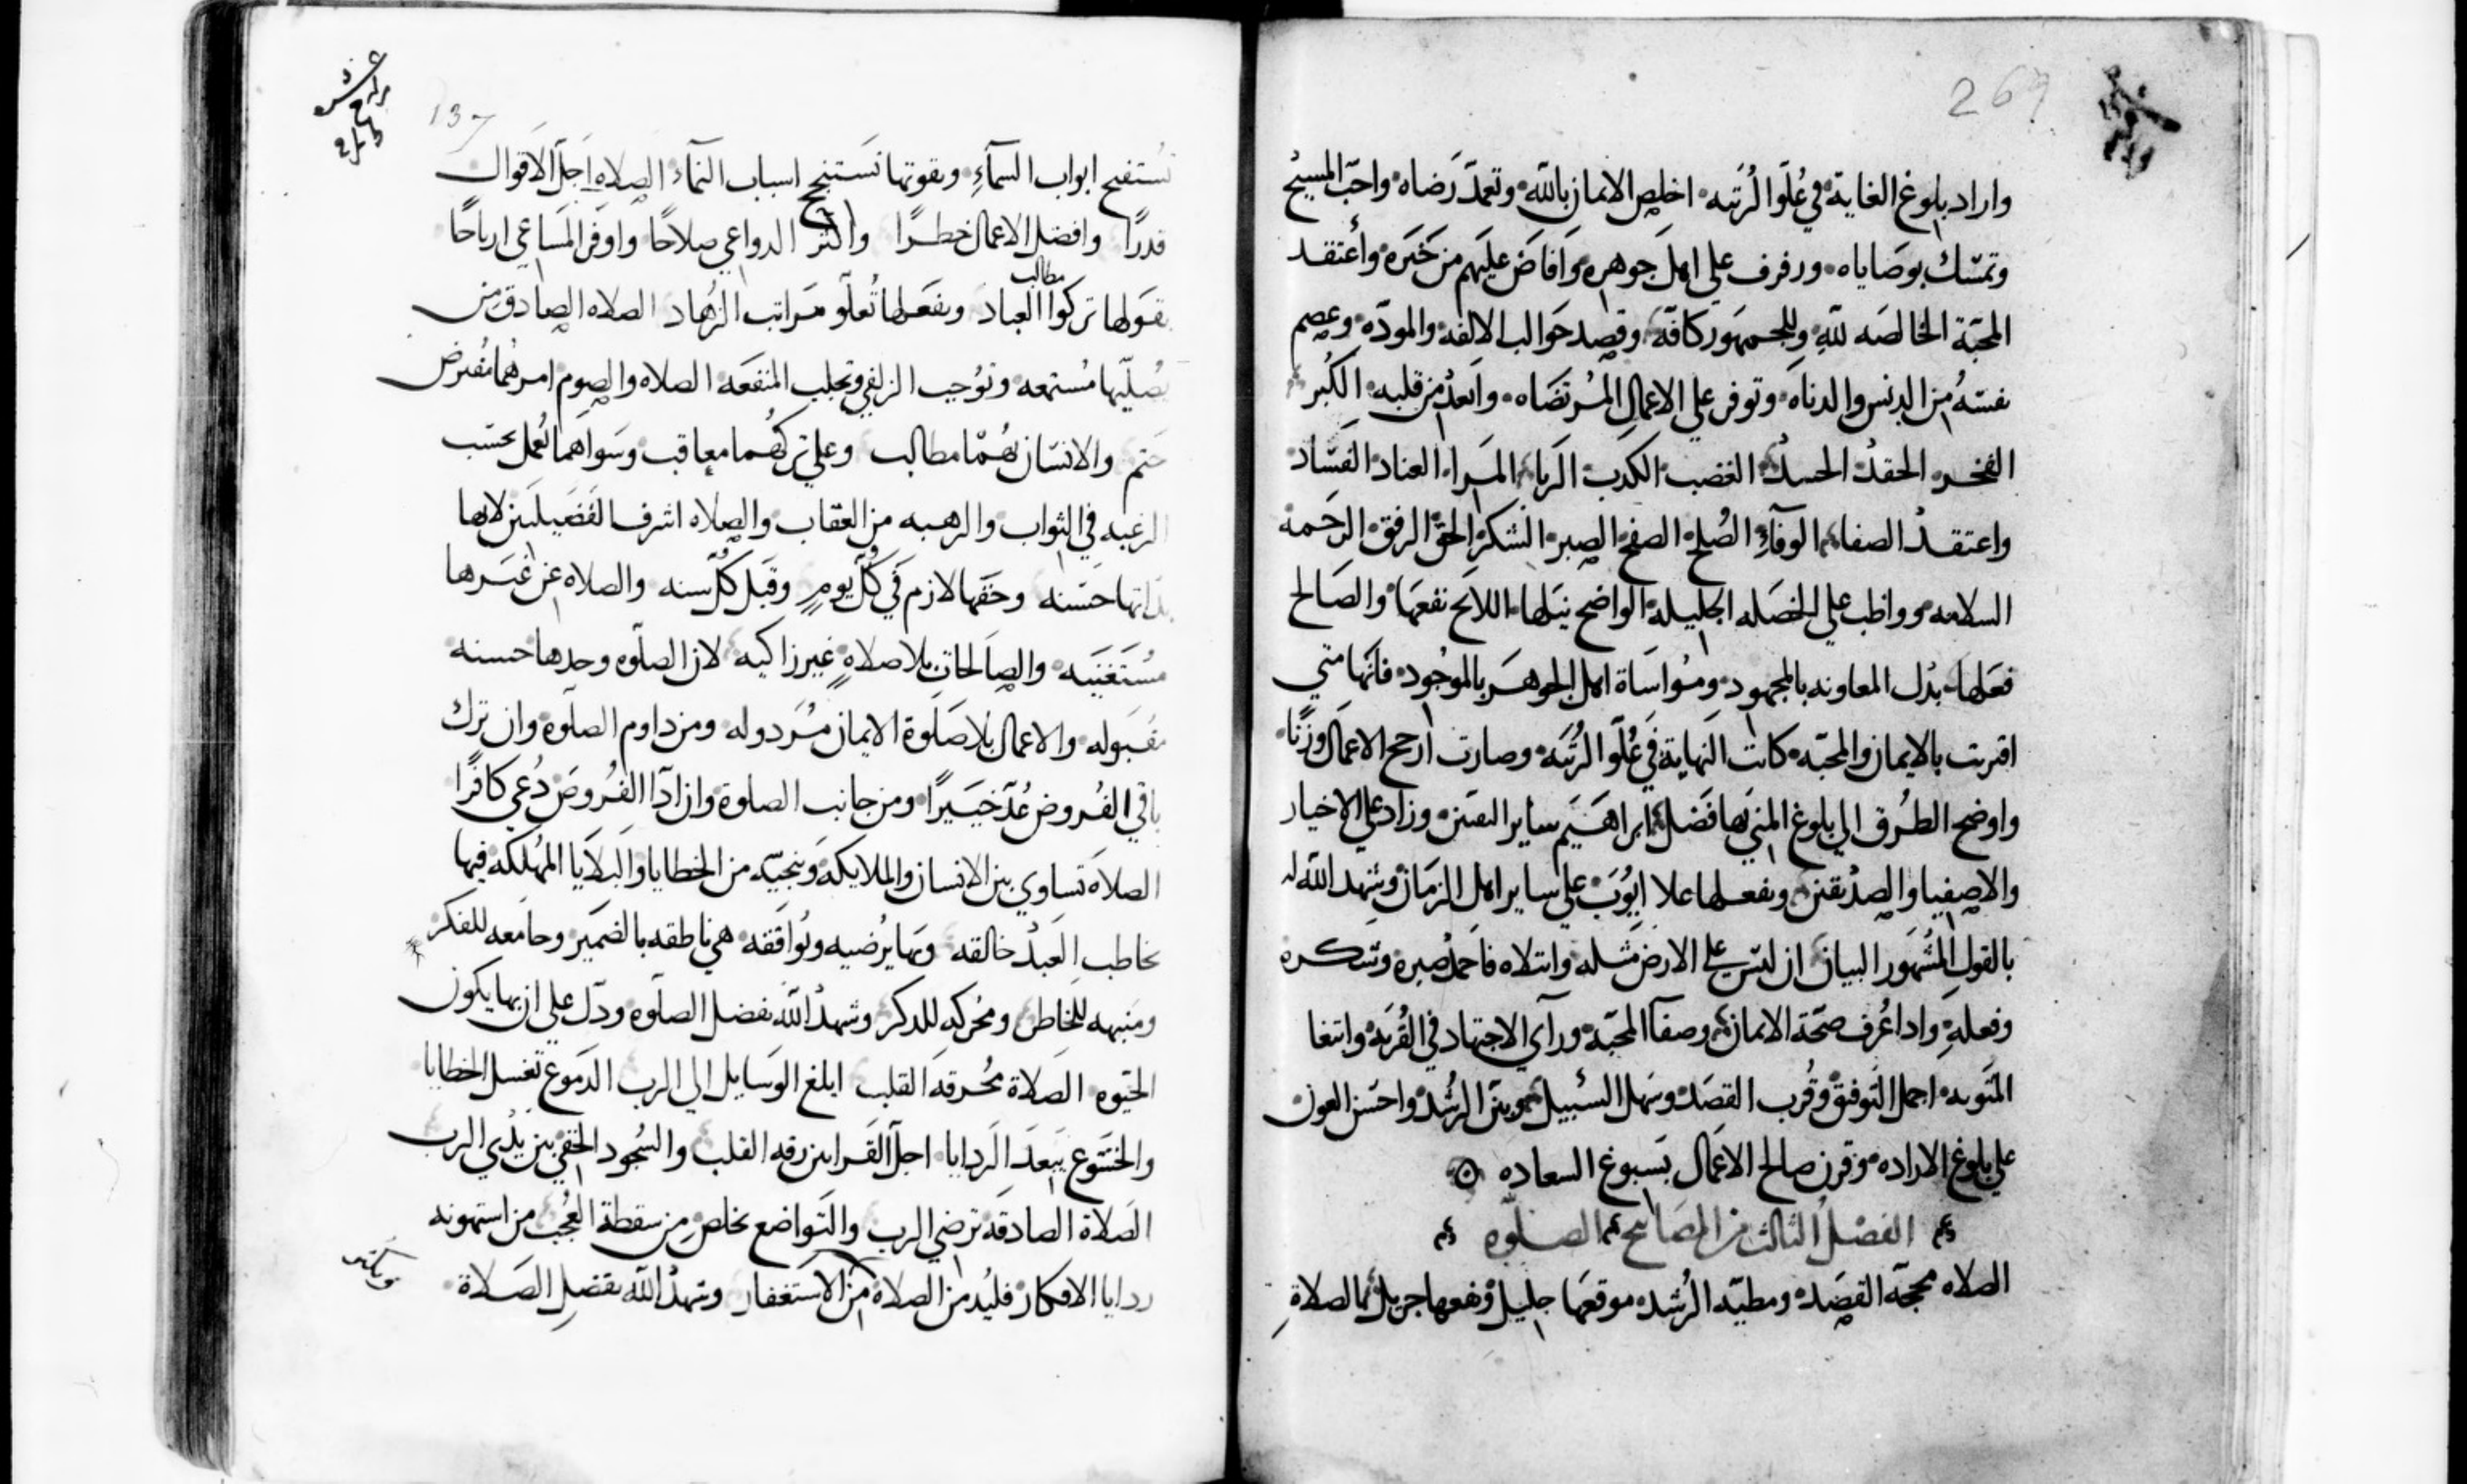 269
واراد بلوغ الغاية في عُلّو الرُتبه اخلص الايمان بالله وتعمدّ رَضاه واحبّ المسيح
وتمسّك بوصَاياه ورفرف علي اهل جوهره وَافاضَ عليَهم من خَيَره وأعتقد
المحبّة الخالصَه للّهِ وللجمهَور كافّة وقصد حَوالب الالفه والمودّه وعصم
نفسَهُ من الدنس والدناه وتوفر علي الاعمال المُرتضَاه وابعدْ من قلبه الكُبر
الفخر الحقدْ الحسدْ الغضب الكدب الَريا المرا العناد الفسَاد
واعتقدْ الصفا الوفآءِ الصُلح الصفح الصبر الشكرْ الحقْ الرفق الرحَمه
السلامه وواظب علي الخصَله الجليله الواضح نبَلها اللايَح نفعهَا والصَالح
فعَلها بدْل المعاونه بالمجهود ومُواسَاة اهل الجوهَر بالموجُود فانَها متي
اقتربت بالايمان والمحبّه كانت النهاية في عُلّو الرُتبَه وصارت ارجح الاعمَال وزنًا
واوضح الطُرق الي بلوغ المني بَها فضَل ابراهَيَم ساير النفسَ وزاد علي الاخيار
والاصفيا والصدْيقين وبفعلها علا ايوُبَ علي ساير اهل الزمَان وشهد اللّه له
بالقول المشُهَور البيان ان ليَس علي الارض مَثله وابتلاه فاحمدْ صبره وشكره
وفعلهِ واداعُرف صحّة الايمان وصفآ المحبّة ورآي الاجتهاد في القُربَة وابتغا
المثَوبه اجمل التَوفيق وقُرب القصَدْ وسَهل السَبيل وبيَن الرُشدْ واحسَن العون
علي بلوغ الاراده وقرن صالح الاعمَال بسبوغ السعاده
الفصْل الثالث من المصَابيح الصلَوه
الصلاه محجة القصَد ومطيّه الرُشد موقعهَا جليل ونفعها جزيل بالصلاةِ
137
تُستفتح ابواب السمآءِ وبقوتها تَستنتج اسباب النمآء الصلاه اَجَلّ الاقوال
قدرًا وافضل الاعمال خطرًا واكثر الدواعي صلاحًا واوفر المَساعي ارباحًا
بقولها تركوا مطالب العباد وبفعَلها تُعلَو مَراتب الزُهاد الصلاه الصادق من
يُصلّيها مُستمعه وتوُجب الزلفي وتجلب المنفعَه الصلاه والصوم امرهُما مُفترض
حَتم والانسَان بهُمَا مطالب وعلي تركهُما معاقب وَسَواهَما يُعمل بحسَب
الرغبه في الثواب والرهبه من العقاب والصلاه اشرف الفضَيلتين لانها
بذاتها حَسنه وحقهَا لازم في كُلّ يومٍ وقَبَل كُلّ سنه والصلاه عن غَيَرها
مُستَغنيَه والصَالحات بلا صلاهٍ غير زاكيه لان الصلَوه وحدها حسنه
مقبَوله والاعمال بلاصَلَوة الايمان مُرَدوله ومن داوم الصلَوة وان ترك
باقي الفروض عُدّ خَيَيرًا ومن جانب الصلوة وان ادّا الفُروضَ دُعي كافرًا
الصلاه تساوي بين الانسان والملايكه وَتنجيّه من الخطايا وَالبَلايَا المهُلكه فيها
يخاطب العَبدْ خالقه وبهَا يرُضيه ويُوافقه هي ناطقه بالضمَير وجامعه للفكر
ومنبهه للخاطر ومحُركه للدكر وشهدْ اللّه بفضل الصلَوه ودّل علي ان بها يكون
الحيَوه الصَلاة مُحرقة القلب ابلغ الوسَايل الي الرب الدَموع تغسل الخطايا
والخشَوع يبَعدَ الَردايا اجلّ القَرابين رقه القلب والسُجود الحقي بين يَدْي الرب
الصَلاة الصادقَة ترضي الرب والتَواضع يخلص من سقطة العُجب من استهونه
ردايا الافكار فليُدمن الصلاة من الاستغفار وشهدْ اللّه بفضلِ الصَلاة